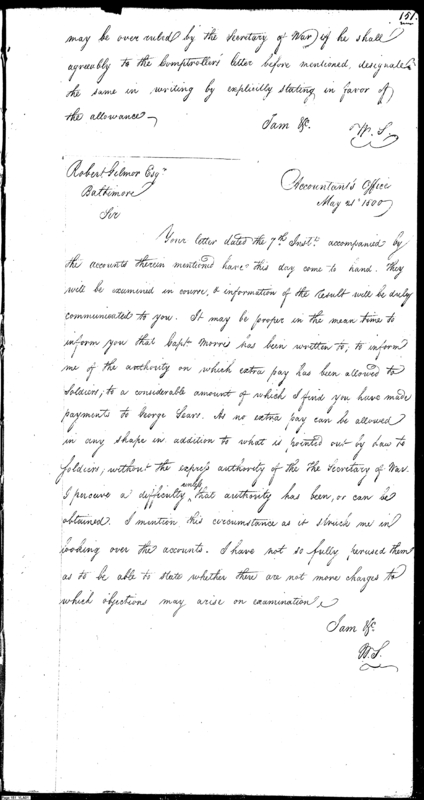 151.
may be over ruled by the Secretary of War if he shall
agreeably to the Comptroller's letter before mentioned, designate
the same in writing by explicitly stating in favor of
the allowance
I am &c.
W. S.
Robert Gilmor Esqr
Baltimore
Sir
Accountant's Office
May 21st 1800
Your letter dated the 7th Instt. accompanied by
the accounts therein mentioned have this day come to hand. They
will be examined in course, & information of the result will be duly
communicated to you. It may be proper in the mean time to
inform you that Capt Morris has been written to, to inform
me of the authority on which extra pay has been allowed to
Soldiers; to a considerable amount of which I find you have made
payments to George Sears. As no extra pay can be allowed
in any shape in addition to what is pointed out by Law to
Soldiers, without the express authority of the the Secretary of War.
I perceive a difficulty unless that authority has been, or can be
obtained. I mention this circumstance as it struck me in
looking over the accounts. I have not so fully perused them
as to be able to state whether there are not more charges to
which objections may arise on examination
I am &c.
W. S.